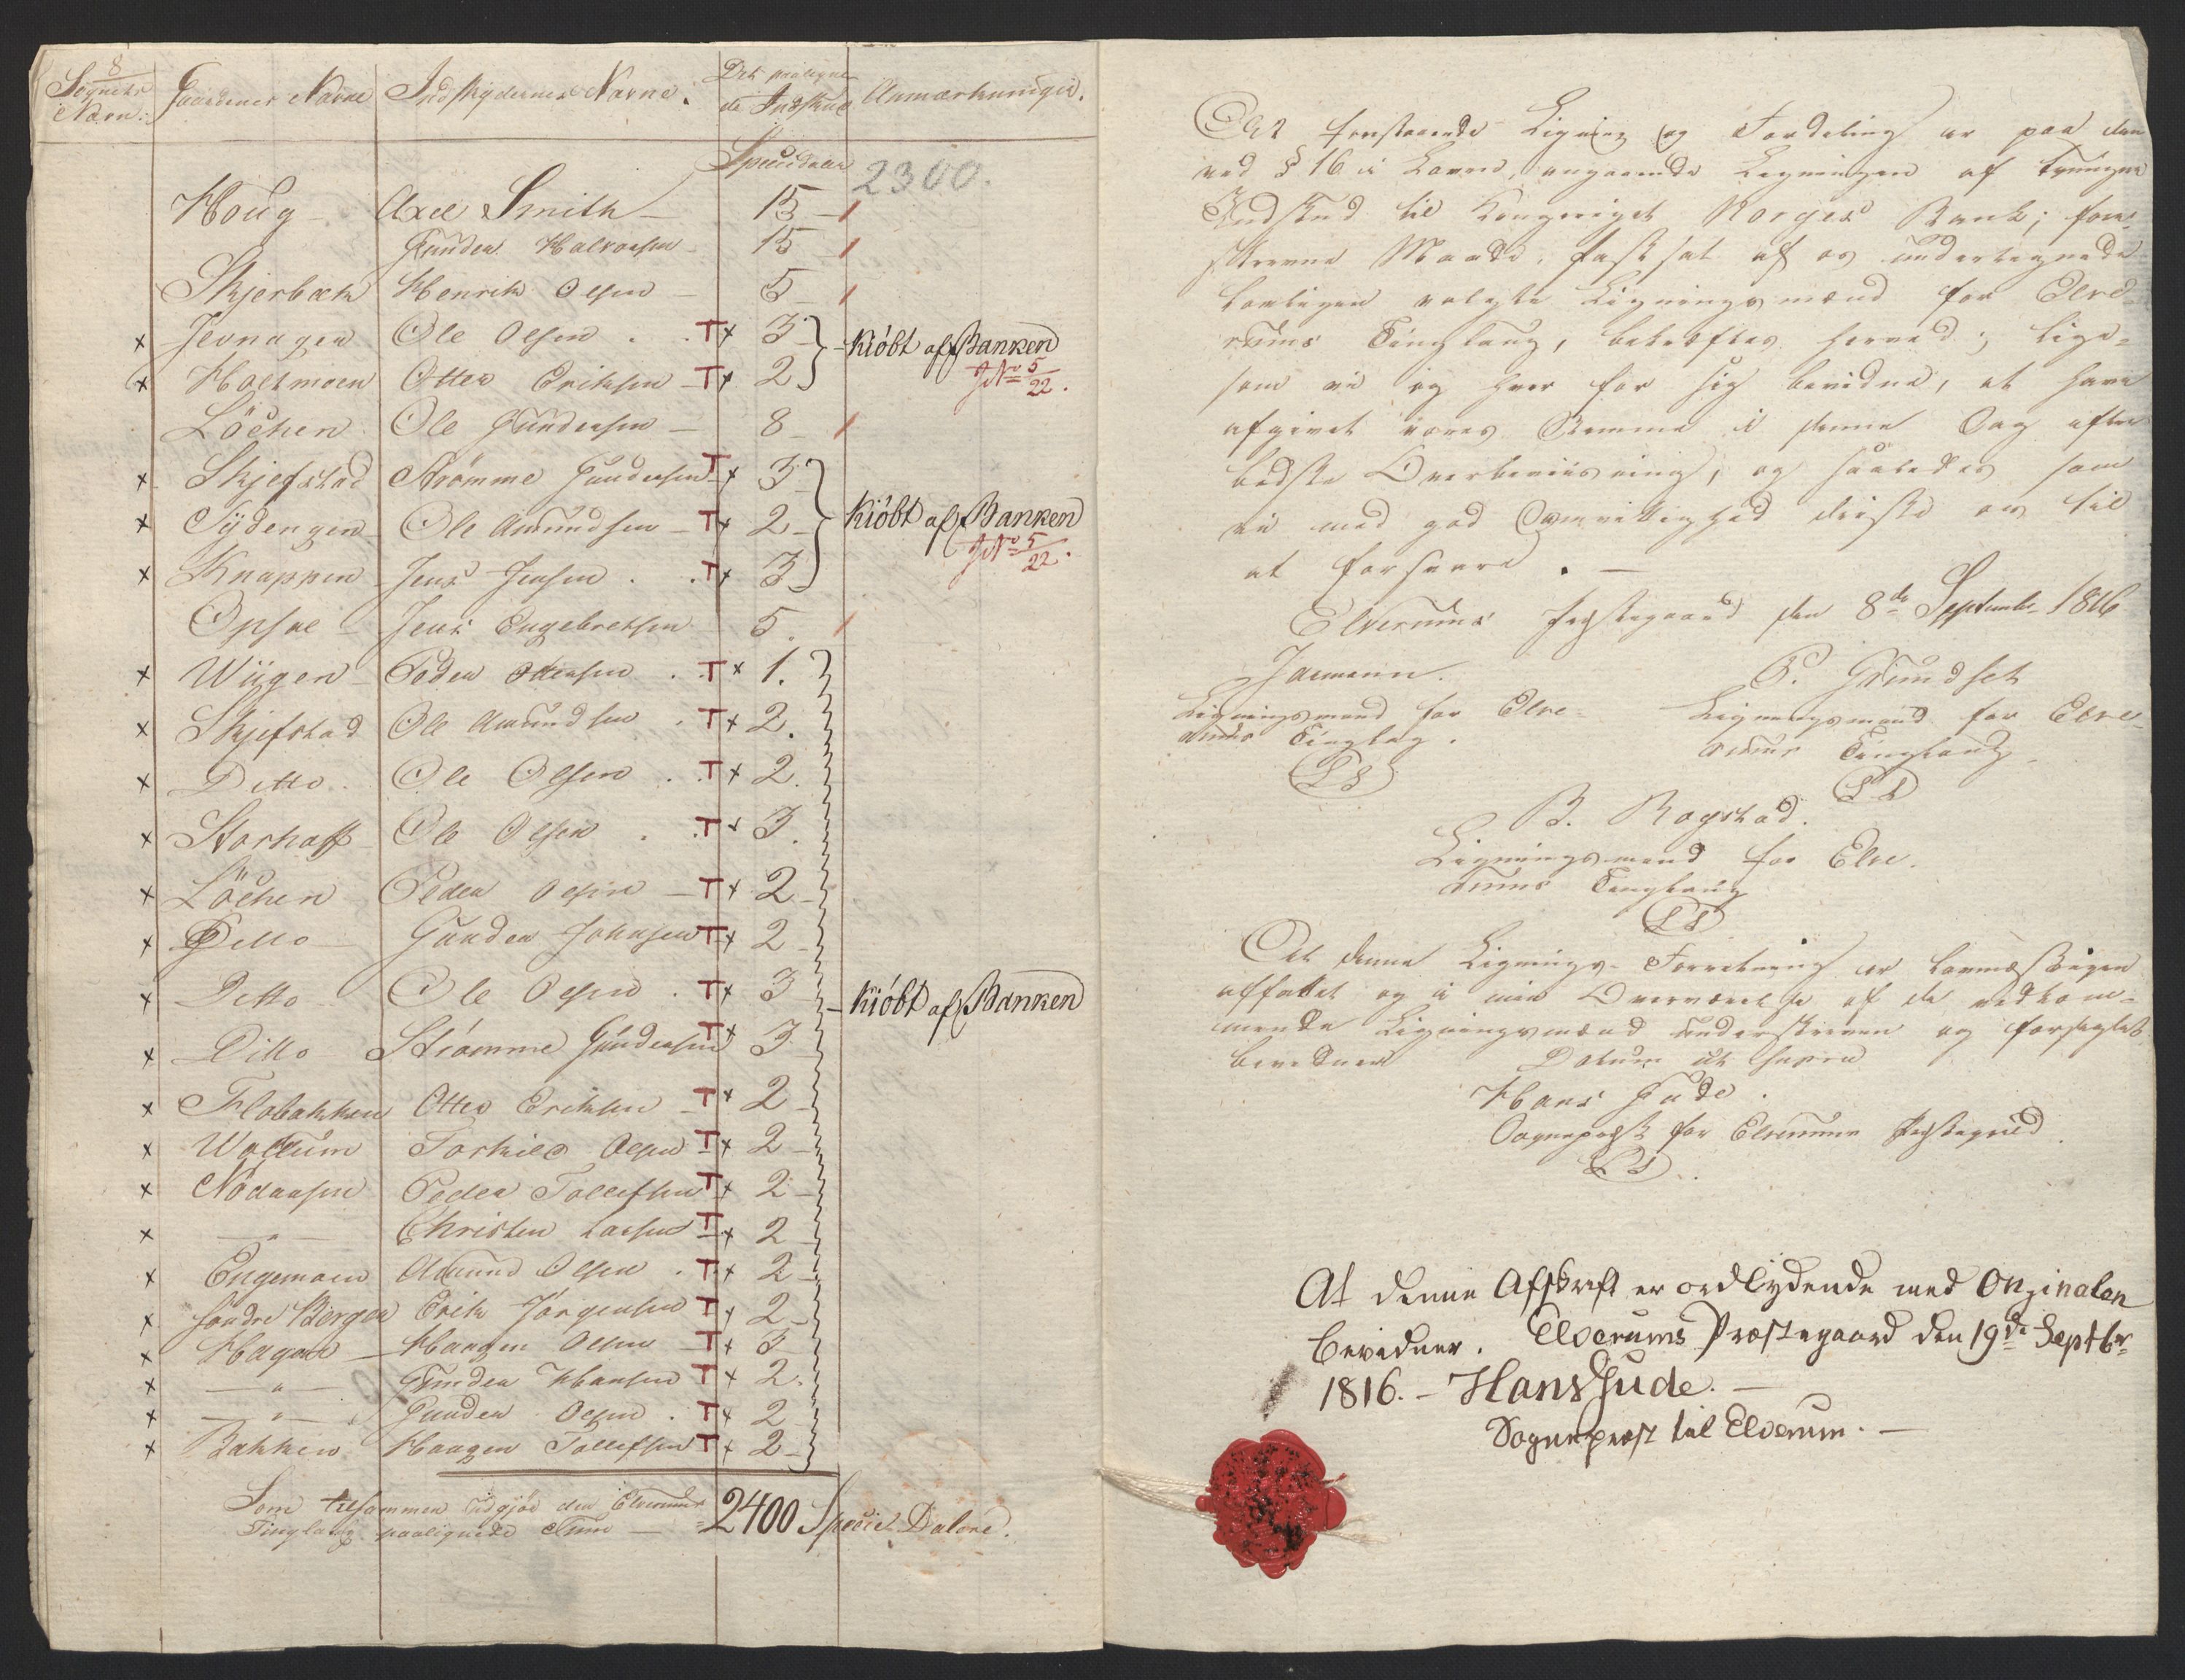 8
Sognets Navn. Gaardenes Navne Indskydernes Navne. Det paalignede Indskud Anmærkninger.
Speciedaler 2300.
Houg Axel Smith 15
Gunder Halvorsen 15
Skjerbæk Henrik Olsen 5
x Jernagen Ole Olsen T x 3 Kiöbt af Banken
x Holtmoen Otter Eriksen T x 2 JNo 5/22.
Löchen Ole Gundersen 8
x Skjefstad Strömme Gundersen T x 3
x Sydengen Ole Amundsen T x 2 Kiöbt af Banken
x Knappen Jens Jensen T x 3 JNo 5/22.
Opsal Jens Engebretsen 5
x Wiigen Peder Ottersen T x 1.
x Skjefstad Ole Amundsen T x 2.
x Ditto Ole Olsen T x 2.
x Storhaff Ole Olsen T x 3.
x Löchen Peder Olsen T x 2
x Ditto Gunder Johnsen T x 2
x Ditto Ole Olsen T x 3 Kiöbt af Banken
x Ditto Strömme Gundersen T x 3
x Flobakken Otter Eriksen T x 2
x Wollum Torkild Olsen T x 2
x Nödaasen Peder Tollefsen T x 2
x — " — Christen Larsen T x 2
x Engemoen Amund Olsen T x 2
x Söndre Berger Erik Jörgensen T x 2
x Hagen Haagen Olsen T x 3
x — " — Gunder Hansen T x 2.
x — " — Gunder Olsen T x 2
x Bakken Haagen Tollefsen T x 2
Som tilsammen udgjör den Elverums
Tinglaug paalignede Sum — 2400 Specie Dalere.
At forestaaende Ligning og Fordeling er paa den
ved § 16 i Loven, angaaende Ligningen af tvungne
Indskud til Kongeriget Norges Bank, fore-
skrevne Maade, fastsat af os undertegnede
lovligen valgte Ligningsmænd for Elve-
rums Tinglaug, bekræftes herved; lige-
som vi og hver for sig bevidne, at have
afgivet vores Stemme i denne Sag efter
bedste Overbeviisning, og saaledes som
vi med god Samvittighed driste os til
at forsvare.
Elverums Præstegaard den 8de Septembr 1816
Jarmann. P. Grundset
Ligningsmand for Elve- Ligningsmand for Elve-
rums Tinglag. rums Tinglaug
(LS) (LS)
B. Rogstad.
Ligningsmand for Elve-
rums Tinglaug
(LS)
At denne Lignings-Forretning er lovmæssigen
affattet og i min Overværelse af de vedkom-
mende Ligningsmænd underskreven og forseglet
bevidner Datum ut supra
Hans Gude.
Sognepræst for Elverums Præstegield.
(LS)
At denne Afskrift er ordlydende med Originalen
bevidner. Elverums Præstegaard den 19de Septbr
1816. - Hans Gude. -
Sognepræst til Elverum. -